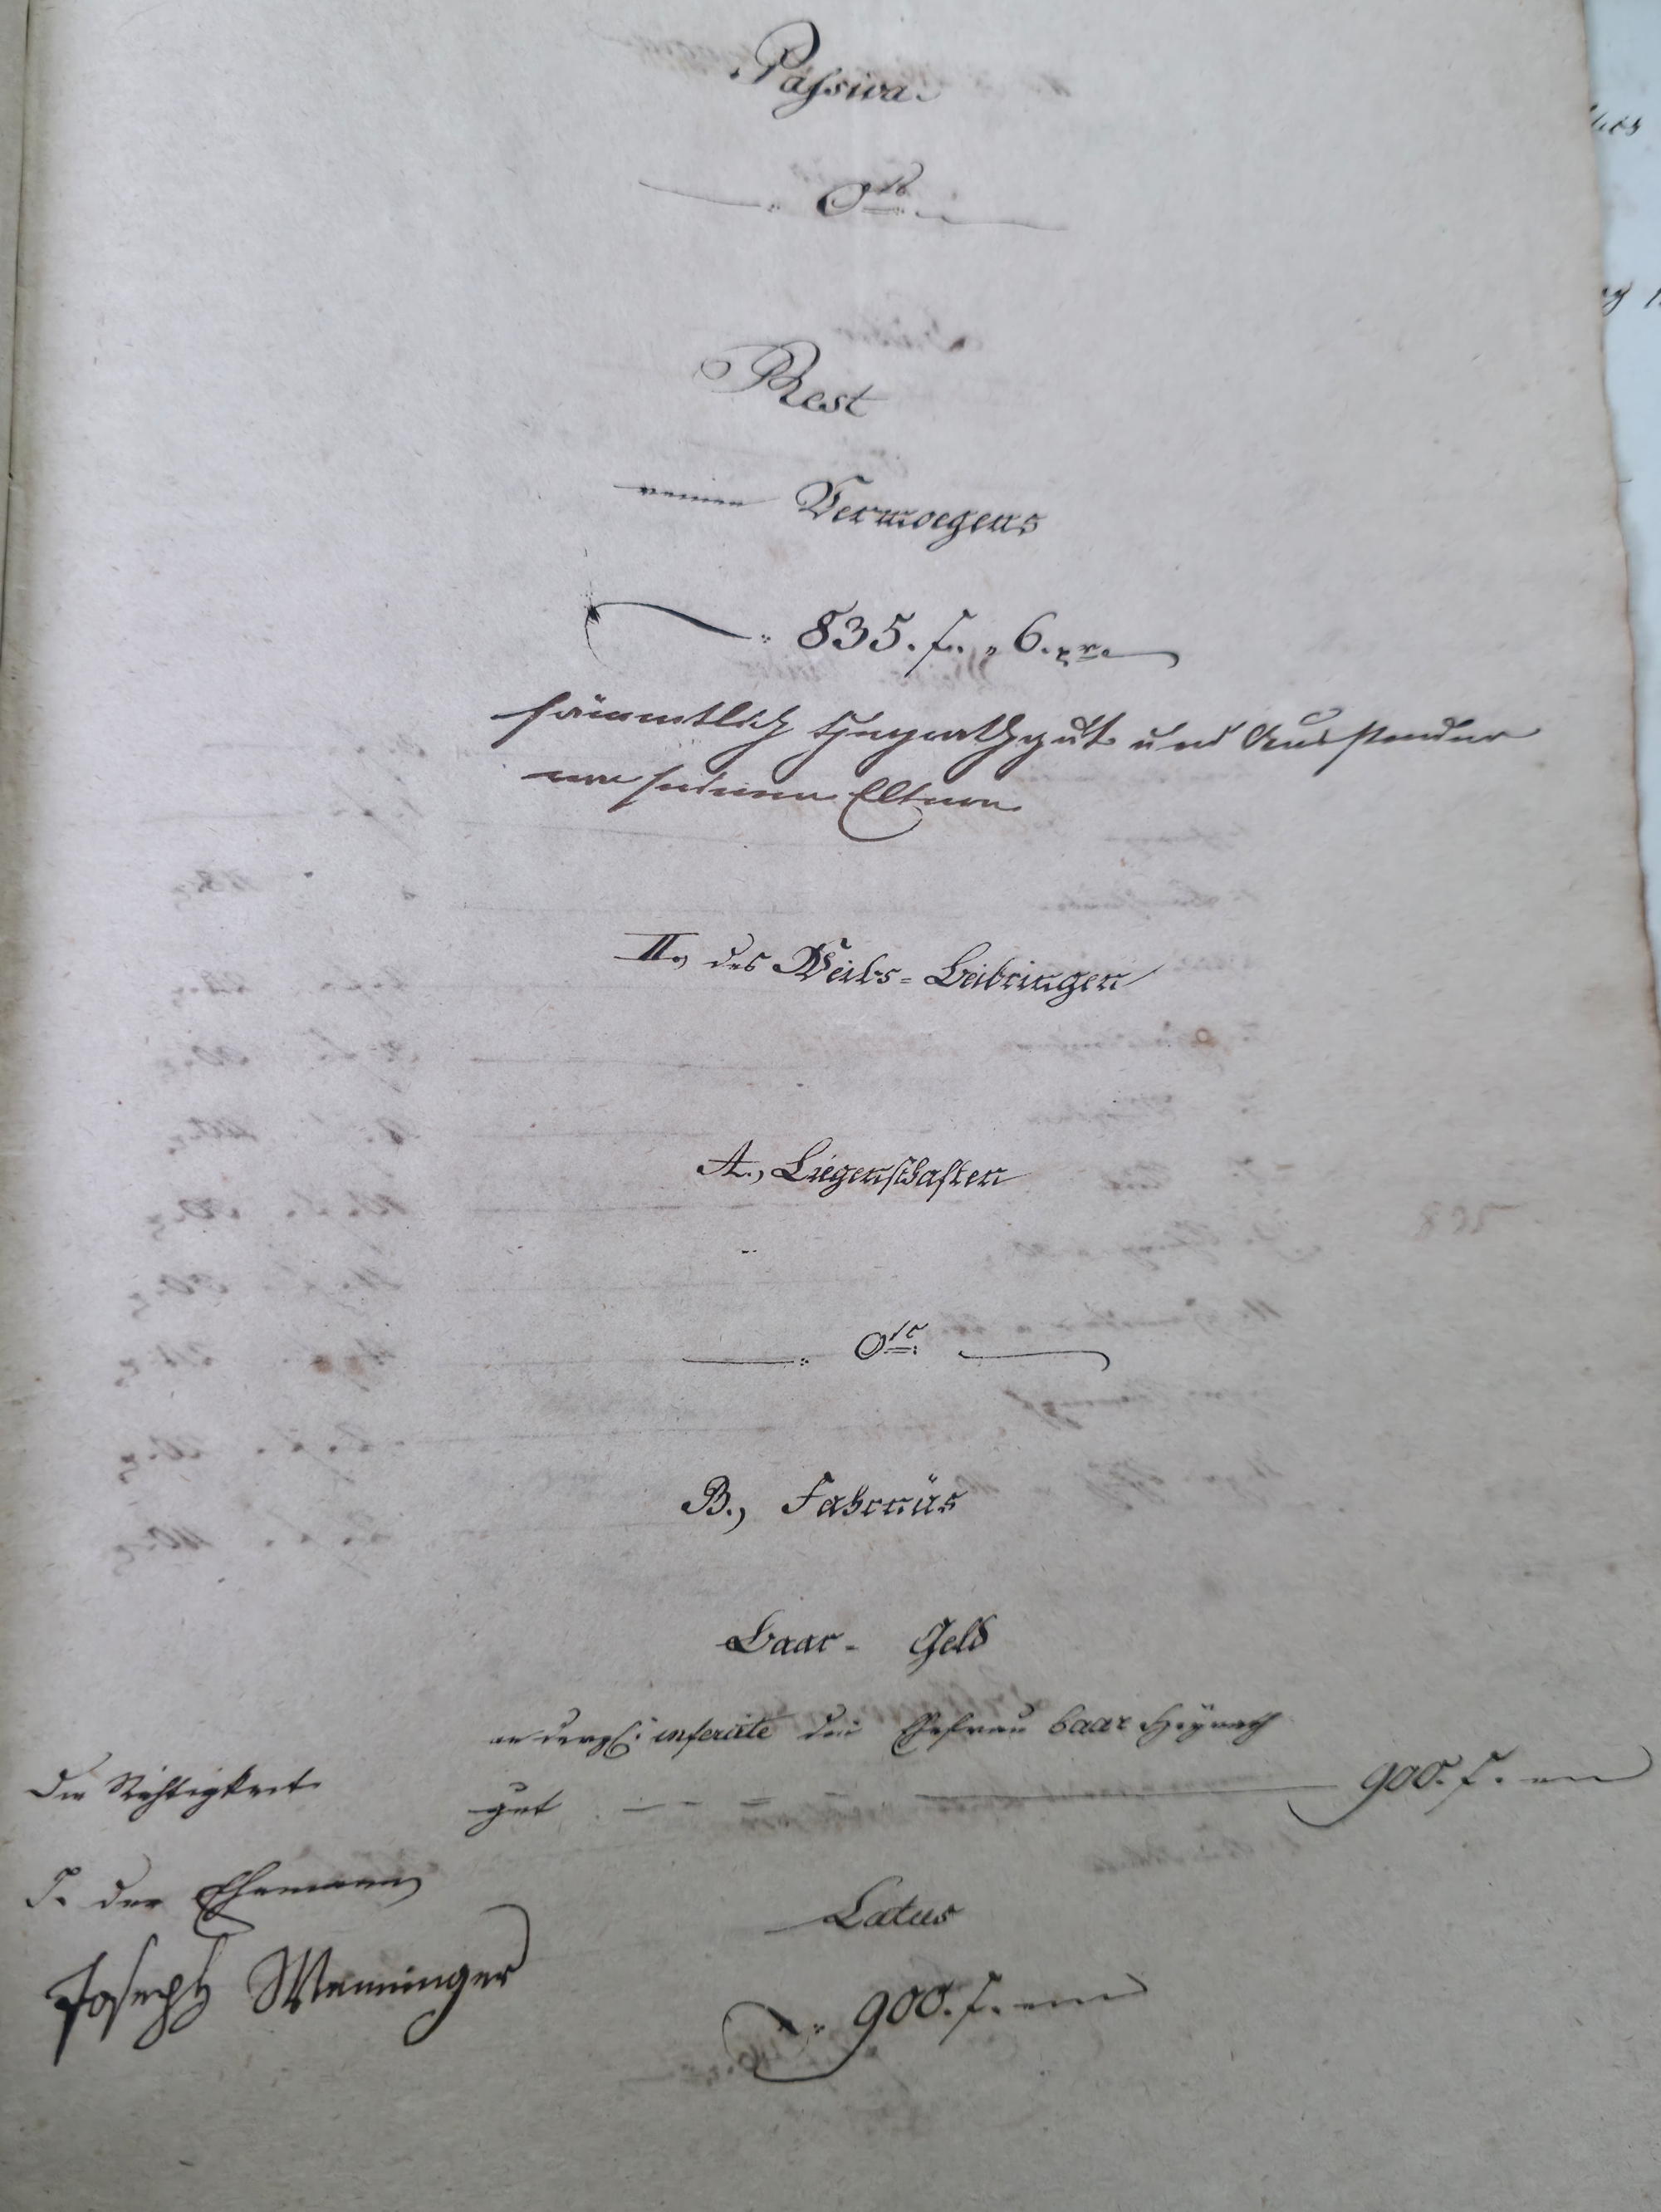 Passiva.
0
Rest
reinen Vermoegens
835. f. 6. xr.
sämmtlich Heyrathgut und
seinen Eltern
II., des Weibs = Beibringen
A., Liegenschaften
0
B., Fahrnüs
Baar - Geld
inferirte die Ehefrau baar Heyrath
gut 900. f. -
Die Richtigkeit
T. der Ehemann
Joseph Wenninger
Latus
900. f. -